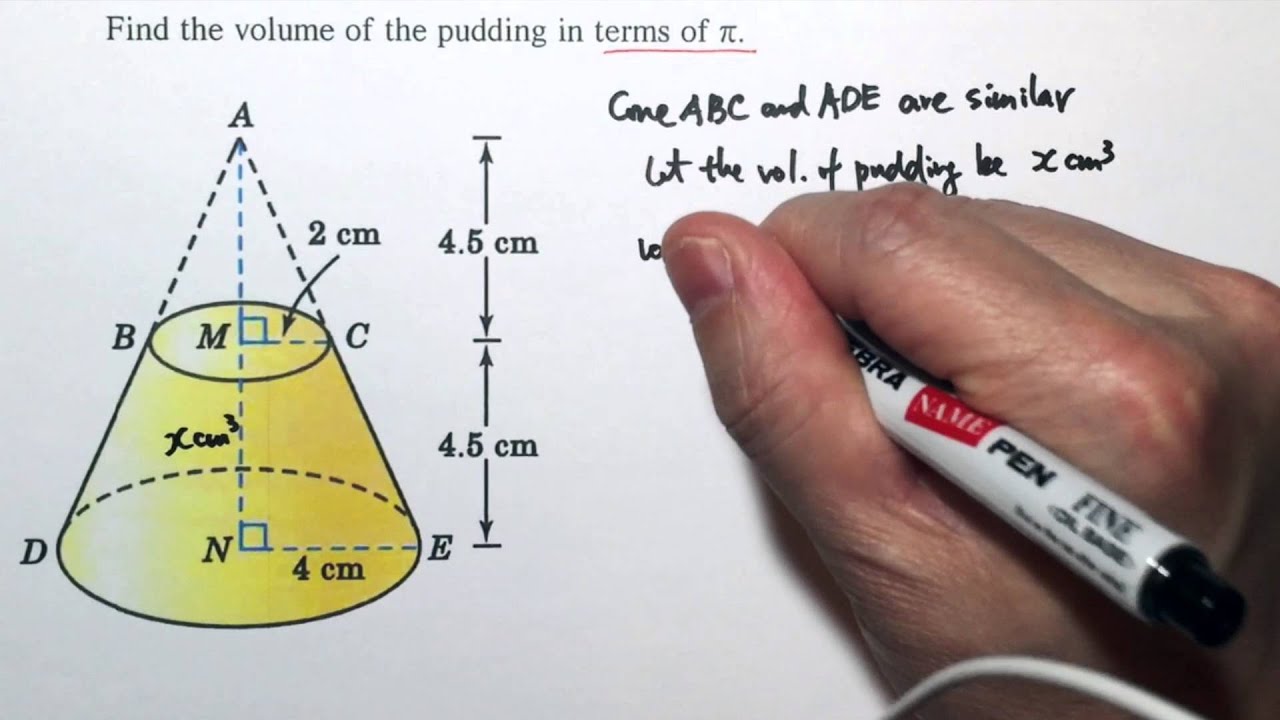 Find the volume of the pudding in terms of π.
Cone ABC and ADE are similar
let the vol. of pudding be x cm³
A
2 cm
4.5 cm
B
M
C
x cm³
4.5 cm
D
N
E
4 cm
ZEBRA
NAME
PEN
FINE